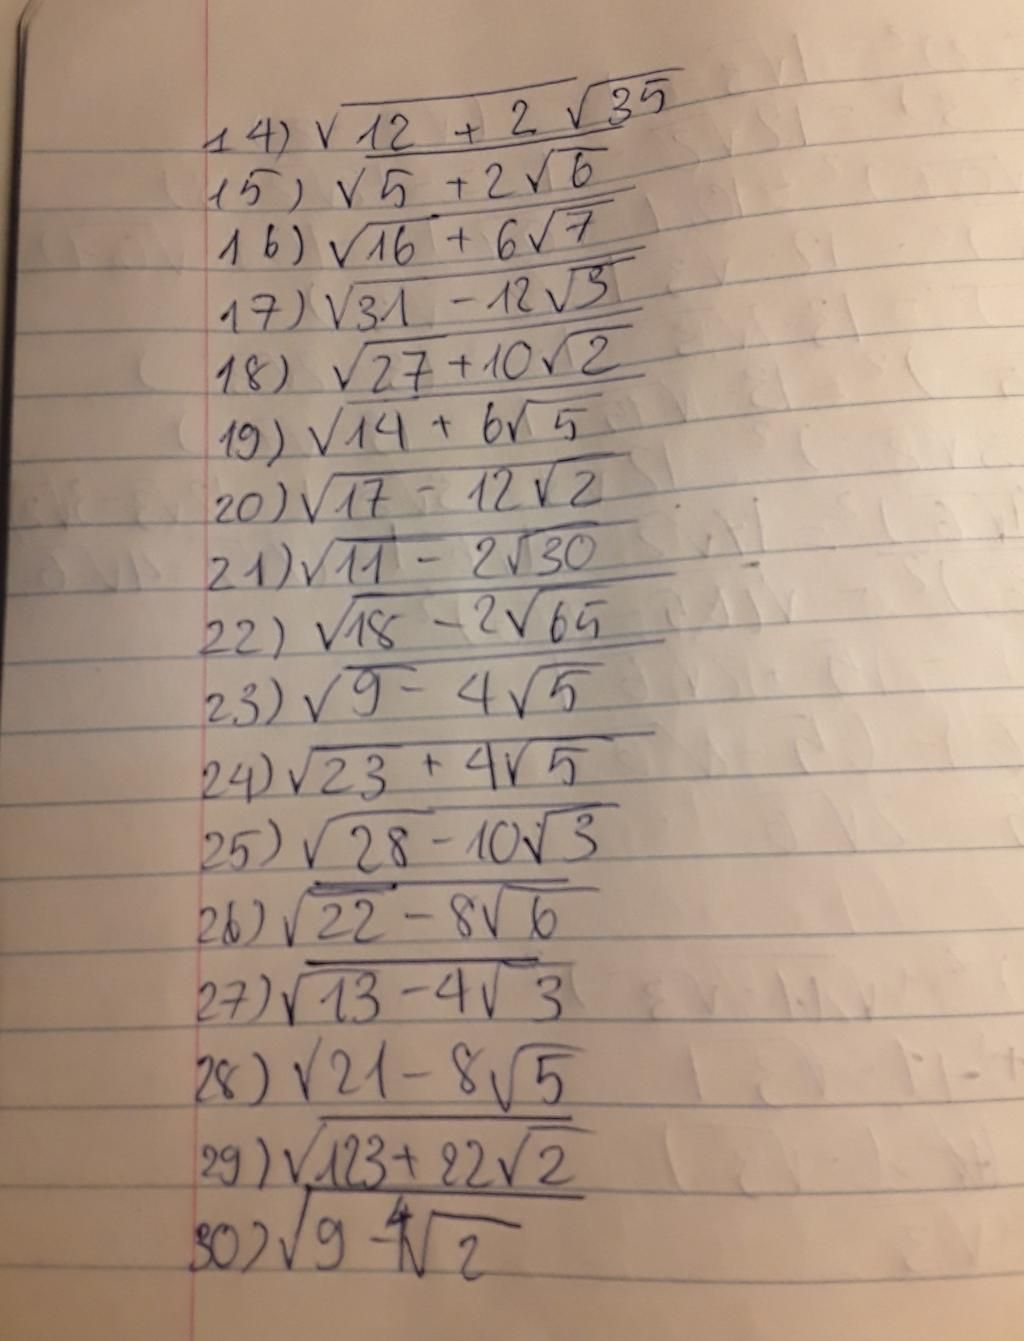 14) √12 + 2√35
15) √5 + 2√6
16) √16 + 6√7
17) √31 - 12√3
18) √27 + 10√2
19) √14 + 6√5
20) √17 - 12√2
21) √11 - 2√30
22) √18 - 2√65
23) √9 - 4√5
24) √23 + 4√5
25) √28 - 10√3
26) √22 - 8√6
27) √13 - 4√3
28) √21 - 8√5
29) √123 + 22√2
30) √9 - 4√2